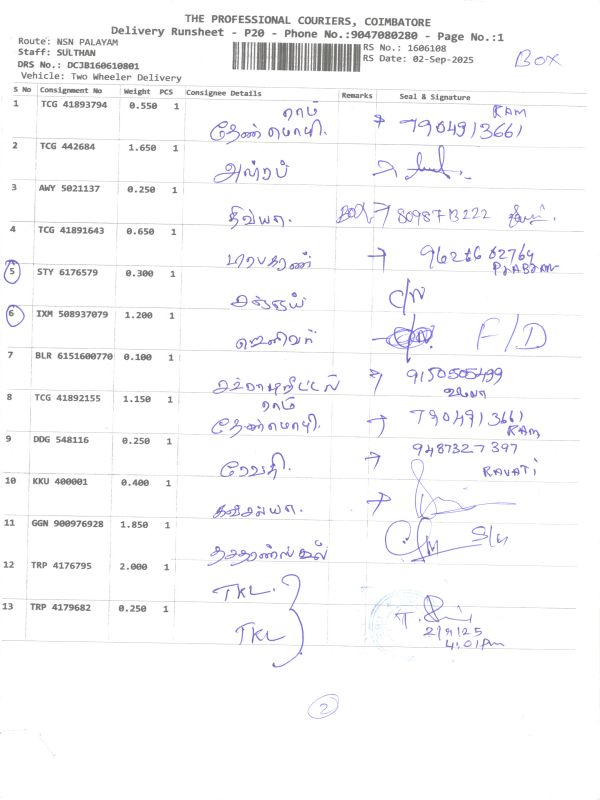 THE PROFESSIONAL COURIERS, COIMBATORE
Delivery Runsheet - P20 - Phone No.:9047080280 - Page No.:1
Route: NSN PALAYAM
Staff: SULTHAN
RS No.: 1606108
RS Date: 02-Sep-2025
BOX
DRS No.: DCJB160610801
Vehicle: Two Wheeler Delivery
S No Consignment No Weight PCS Consignee Details Remarks Seal & Signature
1 TCG 41893794 0.550 1 ராம் RAM
தேன்மொழி. 7904913661
2 TCG 442684 1.650 1
3 AWY 5021137 0.250 1
திவ்யா. BOX 8098713222
4 TCG 41891643 0.650 1
பிரபாகரன்
5 STY 6176579 0.300 1
C/N
6 IXM 508937079 1.200 1
F/D
7 BLR 6151600770 0.100 1
9150505499
8 TCG 41892155 1.150 1 ராம்
தேன்மொழி. 7904913661
RAM
9 DDG 548116 0.250 1 9487327397
ரேவதி. RAVATI
10 KKU 400001 0.400 1
11 GGN 900976928 1.850 1
12 TRP 4176795 2.000 1
TKL.
13 TRP 4179682 0.250 1
TKL
2/9/25
4:01pm
2